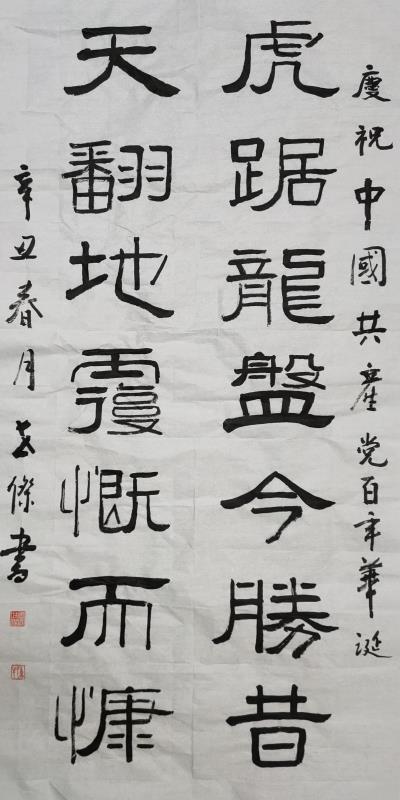 慶祝中國共産党百年華誕
虎踞龍盤今勝昔
天翻地覆慨而慷
辛丑春月傑書